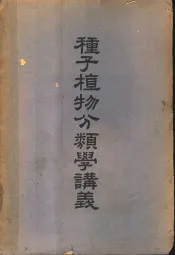 種子植物分類學講義